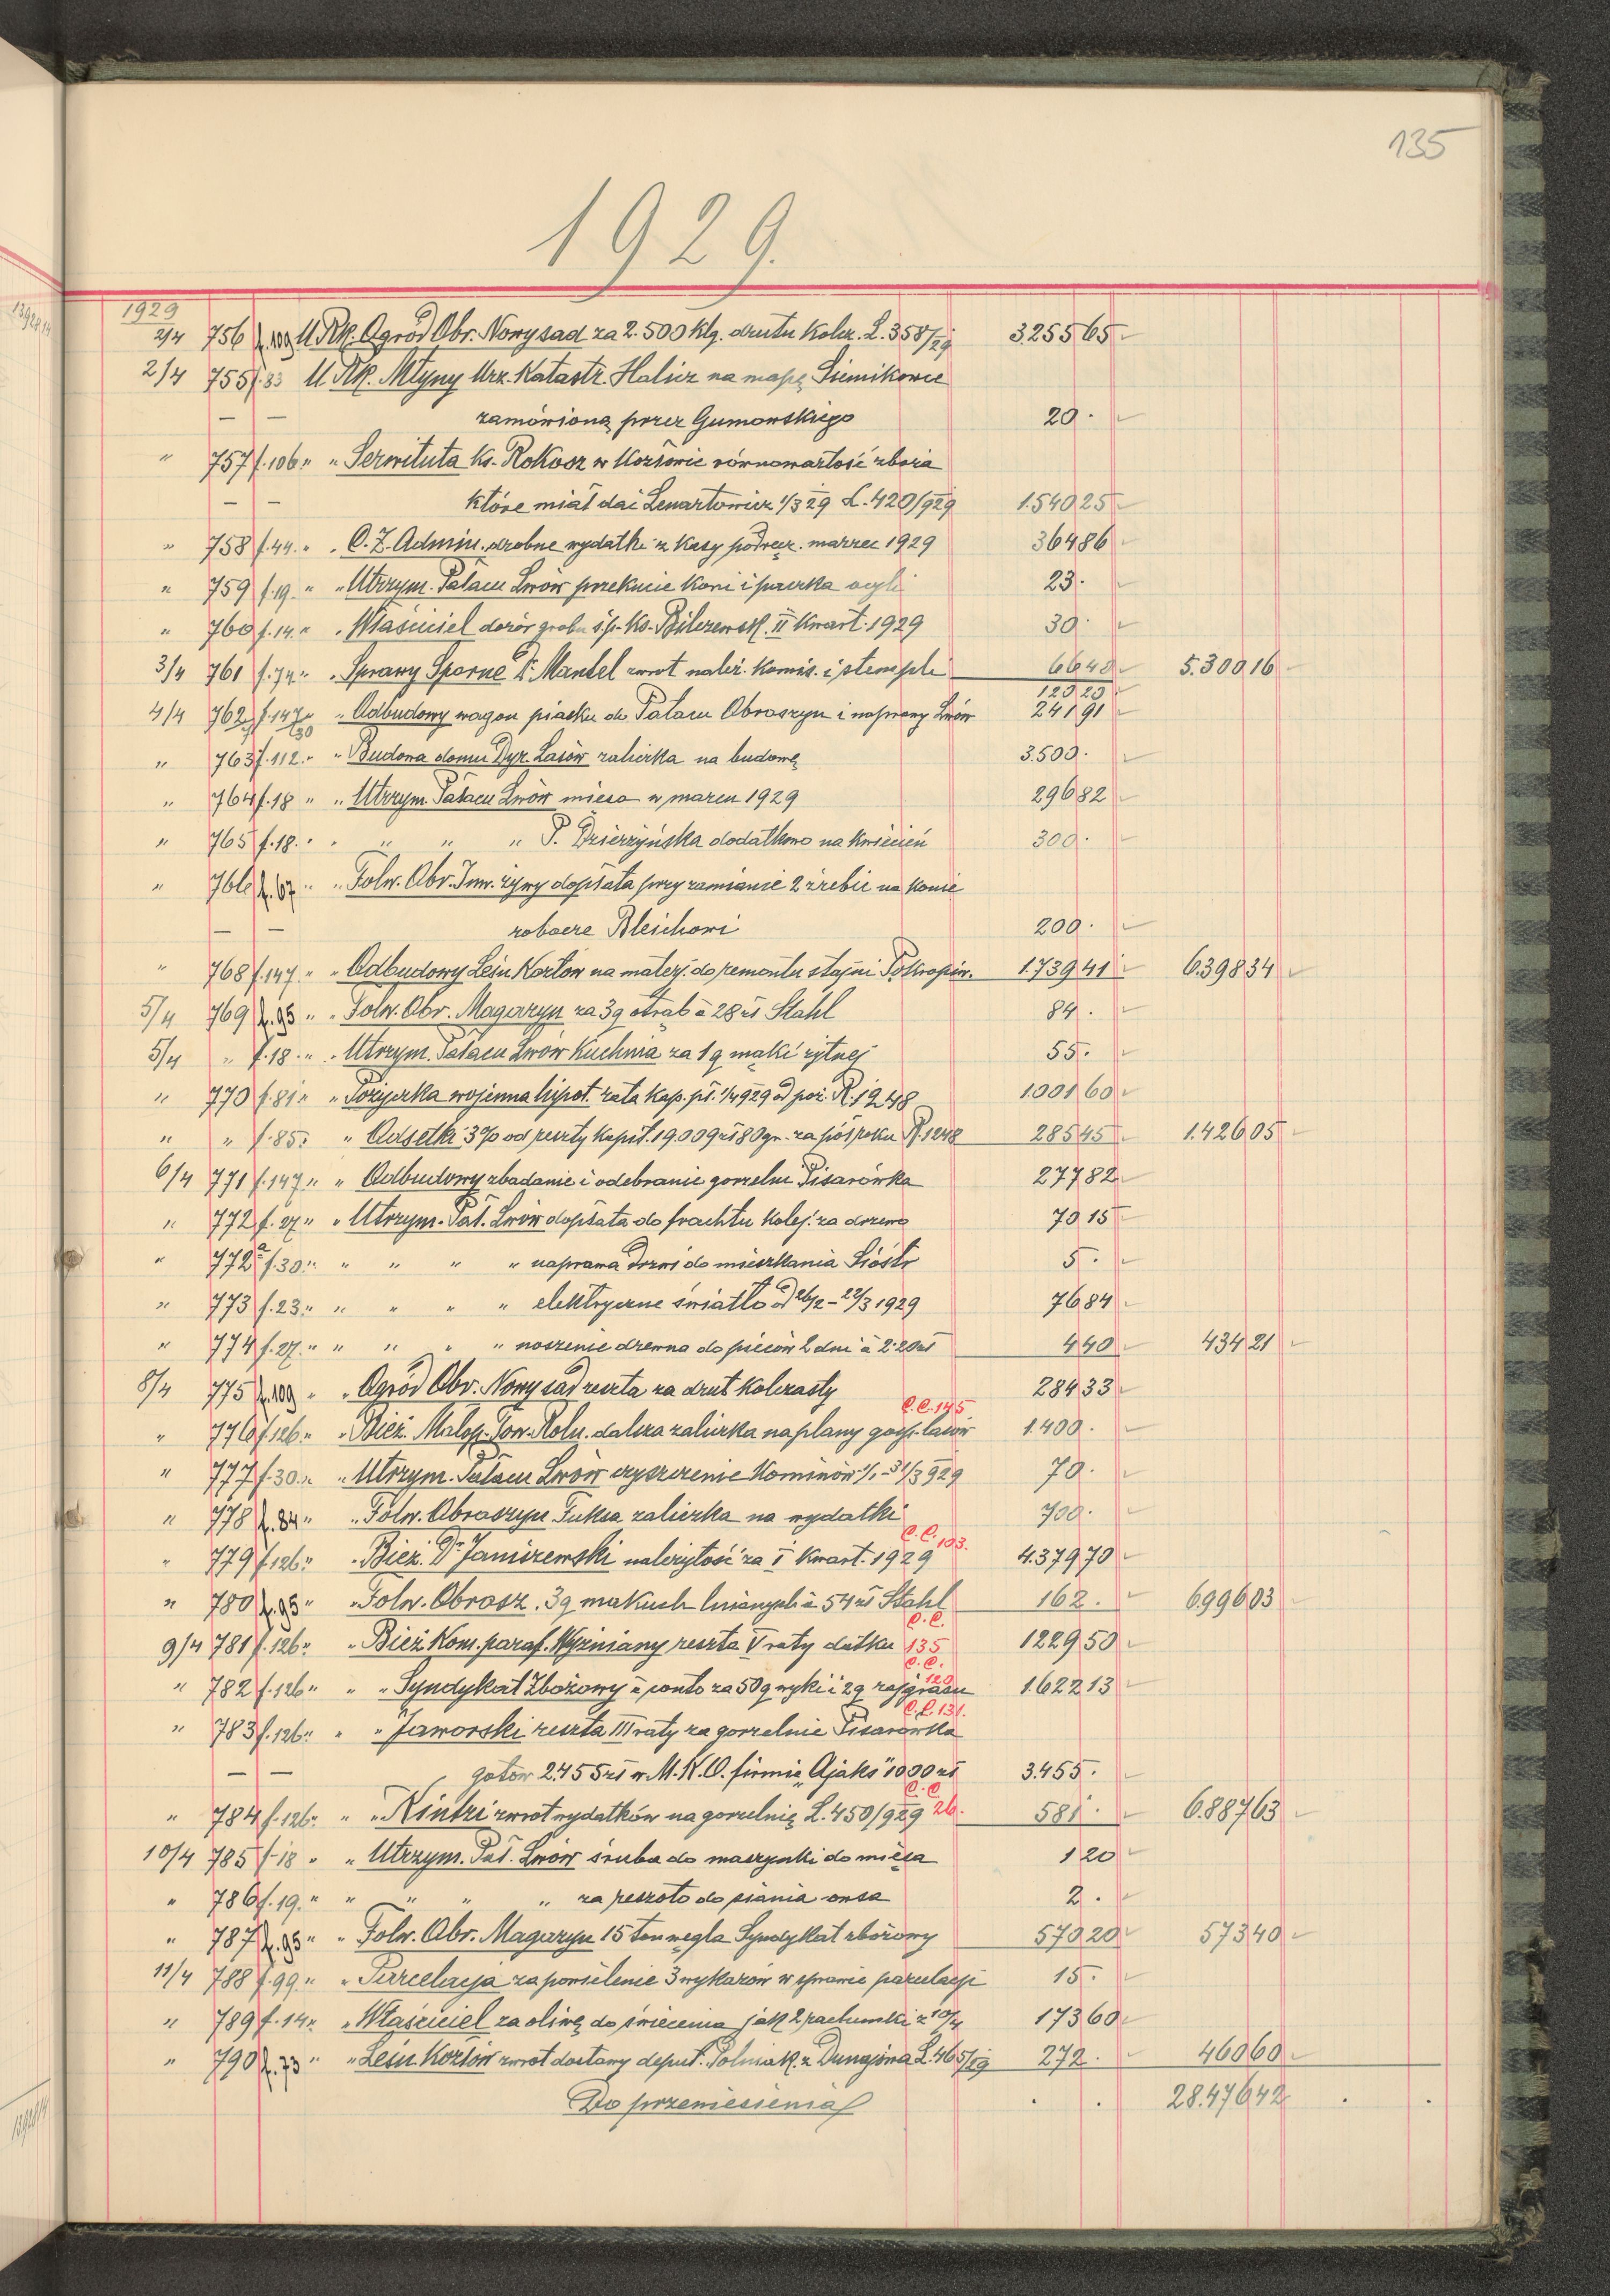 135
1929.
1929
2/4 756 f.109 U Rk. Ogród Obr. Nowy sad za 2.500 klg. drutu kolcz. L. 358/29 3.255 65
2/4 755 f.83 U Rk. Młyny Urz. Katastr. Halicz na mapę Siemikowce
— — zamówioną przez Gumowskiego 20 .
" 757 f.106 " " Serwituta Ks. Rokosz w Kozłowie równowartość zboża
— — które miał dać Lenartowicz 1/3 29 L. 420/929 1.540 25
" 758 f.44. " " C. Z. Admin. drobne wydatki z Kasy podręcz. marzec 1929 364 86
" 759 f.19. " " Utrzym. Pałacu Lwów przekucie koni i 23 .
" 760 f.14. " " Właściciel dozór grobu ś.p. Ks. Bilczewsk. II Kwart. 1929 30 .
3/4 761 f.74 " " Sprawy Sporne Dr. Mantel zwrot należ. komis. i stempli 66 40 5.300 16
120 25
4/4 762 f.147/30 " " Odbudowy wagon piasku do Pałacu Obroszyn i naprawy Lwów 241 91
" 763 f.112. " " Budowa domu Dyr. Lasów zaliczka na budowę 3.500 .
" 764 f.18 " " Utrzym. Pałacu Lwów mięso w marcu 1929 296 82
" 765 f.18. " " " " " P. Dzierżyńska dodatkowo na kwiecień 300 .
" 766 f.67 " " Folw. Obr. Inw. żywy dopłata przy zamianie 2 źrebic na konie
— — robocze Bleichowi 200 .
" 768 f.147. " " Odbudowy Leśn. Kozłów na materj. do remontu stajni Potkropiw. 1.739 41 6.398 34
5/4 769 f.95 " " Folw. Obr. Magazyn za 3q otrąb à 28 zł Stahl 84 .
5/4 " f.18. " " Utrzym. Pałacu Lwów Kuchnia za 1 q mąki żytnej 55 .
" 770 f.81 " " Pożyczka wojenna hipot. rata kap. pł. 1/4 929 od poż. R. 1248 1.001 60
" " f.85. " Odsetki 3% od reszty kapit. 19.009 zł 80 gr. za pół roku R. 1248 285 45 1.426 05
6/4 771 f.147 " " Odbudowy zbadanie i odebranie gorzelni Pisarówka 277 82
" 772 f.27 " " Utrzym. Pał. Lwów dopłata do frachtu kolej. za drzewo 70 15
" 772a f.30. " " " " " naprawa drzwi do mieszkania Sióstr 5 .
" 773 f.23. " " " " " elektryczne światło od 26/2 - 22/3 1929 76 84
" 774 f.27. " " " " " noszenie drzewa do pieców 2 dni à 2.20 zł 4 40 434 21
8/4 775 f.109 " " Ogród Obr. Nowy sad reszta za drut kolczasty 284 33
C.C. 145
" 776 f.126. " " Bież. Małop. Tow. Roln. dalsza zaliczka na plany gosp. lasów 1.400 .
" 777 f.30. " " Utrzym. Pałacu Lwów czyszczenie Kominów 1/1 - 31/3 929 70 .
" 778 f.84 " " Folw. Obroszyn Fuksa zaliczka na wydatki 700 .
C.C. 103.
" 779 f.126. " " Bież. Dr. Janiszewski należytość za I Kwart. 1929 4.379 70
" 780 f.95 " " Folw. Obrosz. 3q makuch lnianych à 54 zł Stahl 162 . 6.996 03
C.C.
9/4 781 f.126. " " Bież. Kom. paraf. Wyżniany reszta V raty datku 135 1229 50
C.C. 120
" 782 f.126. " " " Syndykat Zbożowy à conto za 50 q wyki i 2q rajgrasu 1.622 13
C.C. 131.
" 783 f.126. " " " Jaworski reszta III raty za gorzelnie Pisarówka
— — gotów. 2.455 zł w M.K.O. firmie „Ajaks" 1000 zł 3.455 .
C.C.
" 784 f.126. " " " Kintzi zwrot wydatków na gorzelnię L. 450/929 26. 581 . 6.887 63
10/4 785 f.18 " " Utrzym. Pał. Lwów śruba do maszynki do mięsa 1 20
" 786 f.19. " " " " " za rzeszoto do siania owsa 2 .
" 787 f.95 " " Folw. Obr. Magazyn 15 ton węgla Syndykat zbożowy 570 20 573 40
11/4 788 f.99. " " Parcelacja za powielenie 3 wykazów w sprawie parcelacji 15 .
" 789 f.14 " " Właściciel za oliwę do świecenia jak 2 rachunki z 10/4 173 60
" 790 f.73 " " Leśn. Kozłów zwrot dostawy deput. Polniak. z Dunajowa L. 465/29 272 . 460 60
Do przeniesienia . . 28.476 42 . .